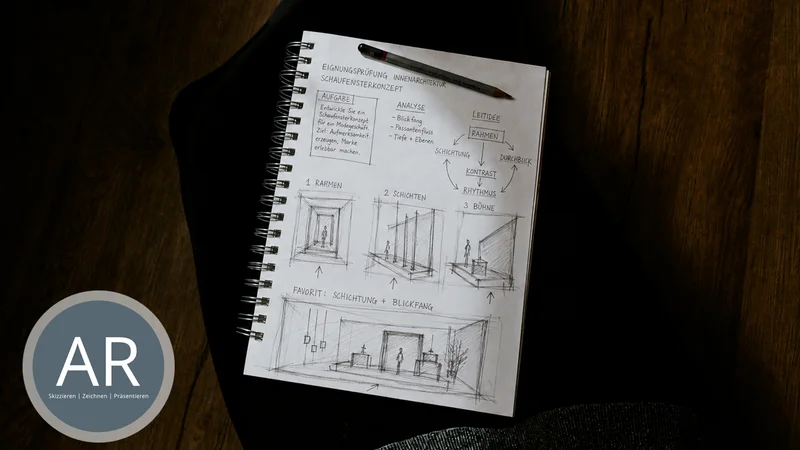 EIGNUNGSPRÜFUNG INNENARCHITEKTUR
SCHAUFENSTERKONZEPT
AUFGABE
Entwickle Sie ein
Schaufensterkonzept
für ein Modegeschäft.
Ziel: Aufmerksamkeit
erzeugen, Marke
erlebbar machen.
ANALYSE
- Blickfang
- Passantenfluss
- Tiefe + Ebenen
LEITIDEE
RAHMEN
SCHICHTUNG
DURCHBLICK
KONTRAST
RHYTHMUS
1. RAHMEN
2. SCHICHTEN
3. BÜHNE
FAVORIT: SCHICHTUNG + BLICKFANG
AR
Skizzieren | Zeichnen | Präsentieren